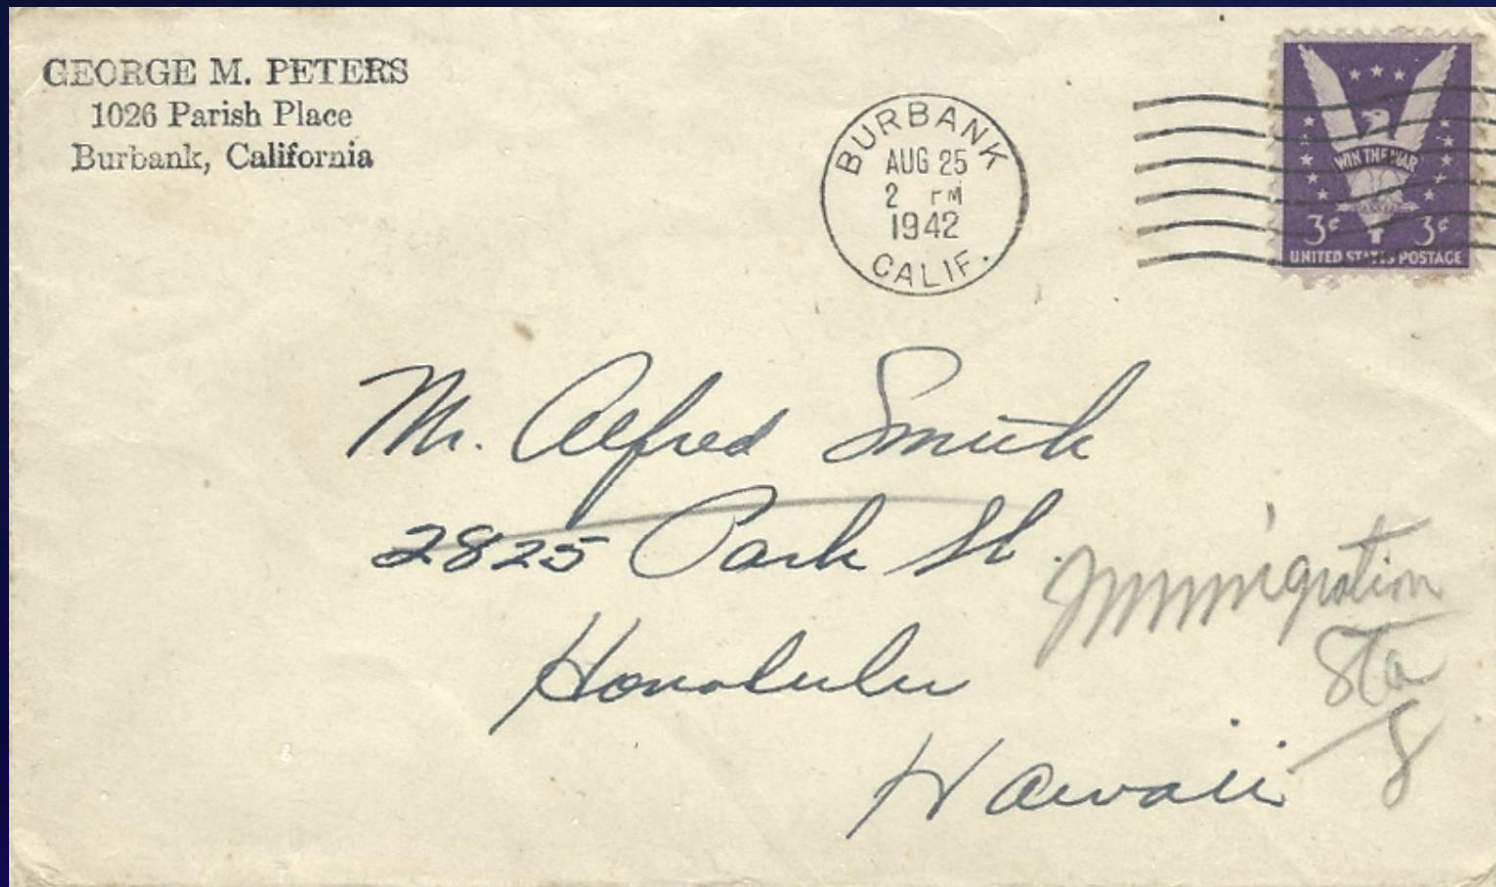 GEORGE M. PETERS
1026 Parish Place
Burbank, California
BURBANK
AUG 25
2 PM
1942
CALIF.
WIN THE WAR
3¢ 3¢
UNITED STATES POSTAGE
Mr. Alfred Smith
2825 Park St.
Honolulu
Hawaii
Immigration
Sta